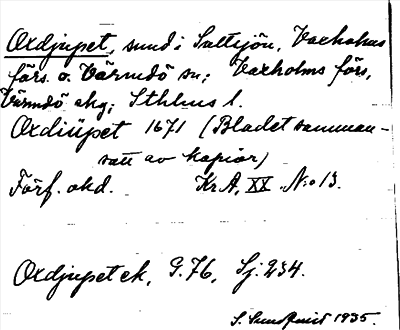 Oxdjupet, sund i Saltsjön, Vaxholms
förs. o. Värmdö sn; Vaxholms förs.,
Värmdö skg; Sthlms l.
Oxdiüpet 1671 (Bladet samman-
satt av kopior)
Förf. okd. Kr A, XX. N:o 13.
Oxdjupet ek, G. 76, Sj. 234.
S. Sundquist 1935.